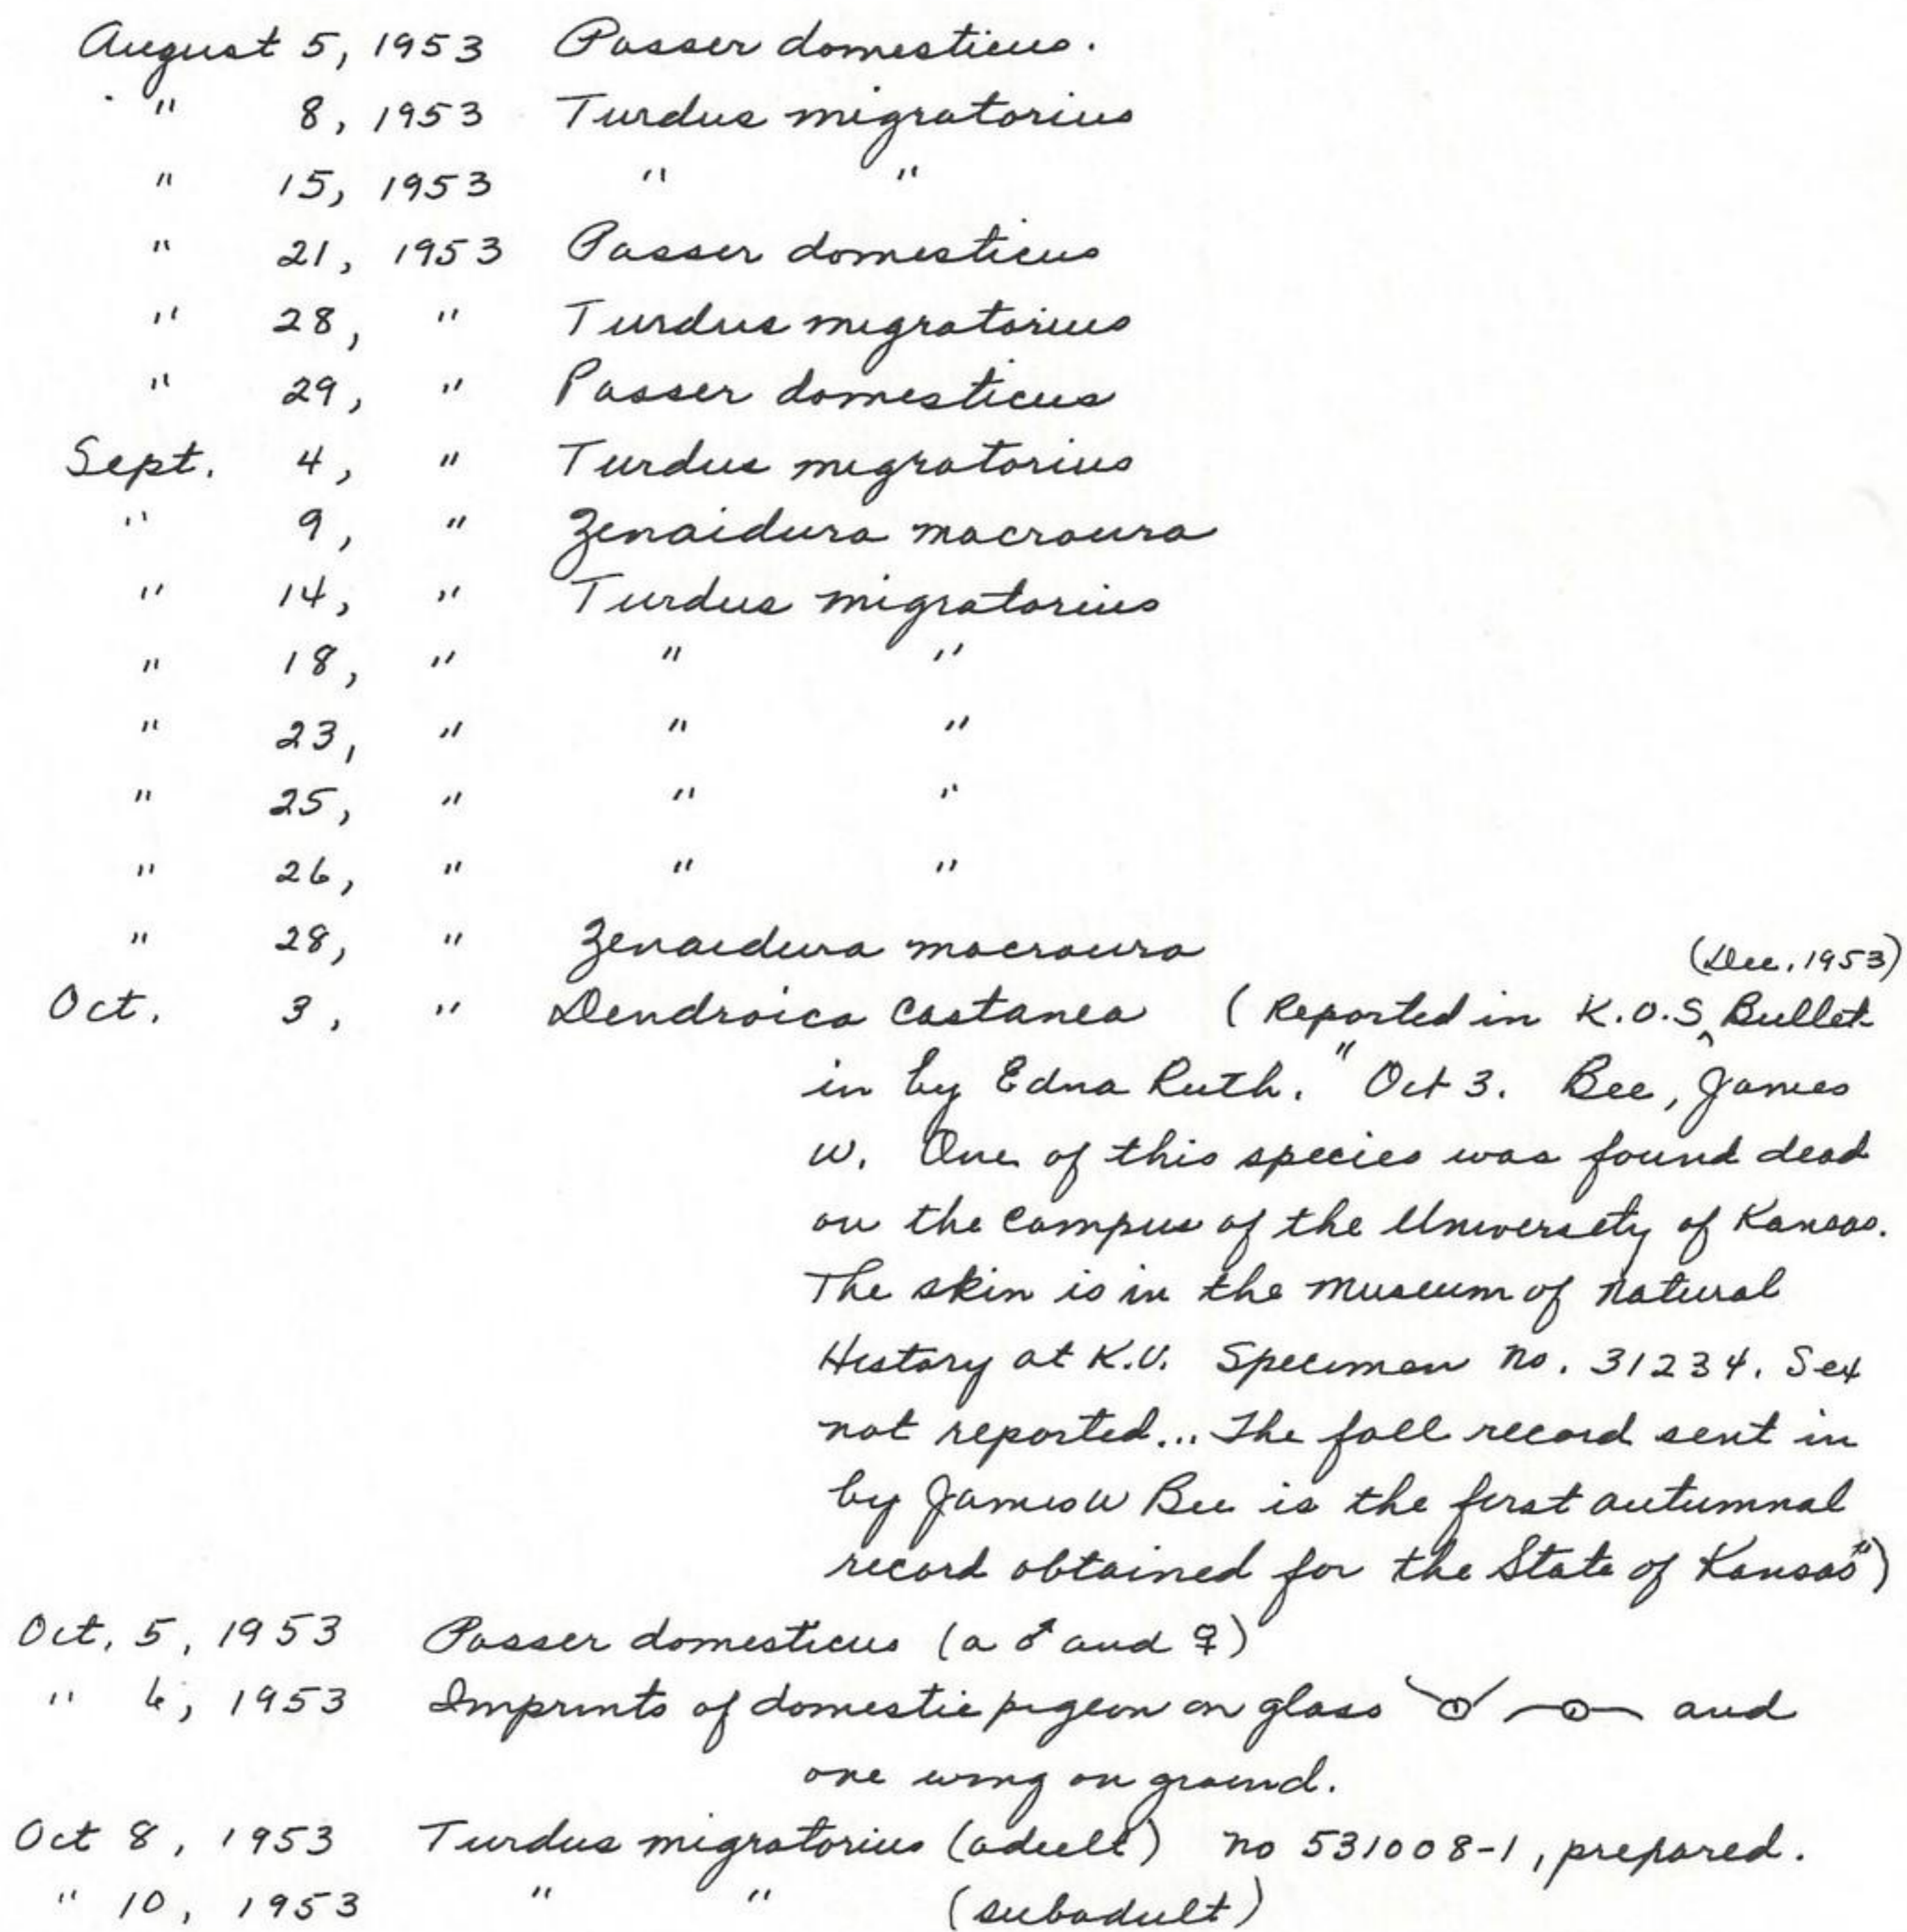 August 5, 1953 Passer domesticus.
" 8, 1953 Turdus migratorius
" 15, 1953 " "
" 21, 1953 Passer domesticus
" 28, " Turdus migratorius
" 29, " Passer domesticus
Sept. 4, " Turdus migratorius
" 9, " Zenaidura macroura
" 14, " Turdus migratorius
" 18, " " "
" 23, " " "
" 25, " " "
" 26, " " "
" 28, " Zenaidura macroura
(Dec. 1953)
Oct. 3, " Dendroica castanea (Reported in K.O.S^ Bullet-
in by Edna Ruth. "Oct 3. Bee, James
W. One of this species was found dead
on the campus of the University of Kansas.
The skin is in the Museum of Natural
History at K.U. Specimen no. 31234. Sex
not reported... The fall record sent in
by James W Bee is the first autumnal
record obtained for the State of Kansas")
Oct. 5, 1953 Passer domesticus (a ♂ and ♀)
" 6, 1953 Imprints of domestic pigeon on glass and
one wing on ground.
Oct 8, 1953 Turdus migratorius (adult) no 531008-1, prepared.
" 10, 1953 " " (subadult)